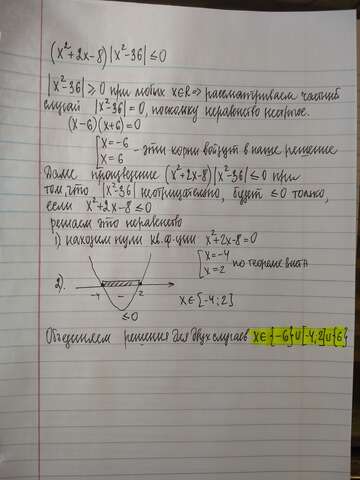 (x²+2x-8)|x²-36|≤0
|x²-36|≥0 при любых x∈R⇒рассматриваем частный
случай |x²-36|=0, поскольку неравенство нестрогое.
(x-6)(x+6)=0
[x=-6
[x=6 - эти корни войдут в наше решение
Далее произведение (x²+2x-8)|x²-36|≤0 при
том, что |x²-36| неотрицательно, будет ≤0 только,
если x²+2x-8≤0
решаем это неравенство
1) находим нули кв. ф-ции x²+2x-8=0
[x=-4
[x=2 по теореме Виета
2).
-4 - 2
≤0
x∈[-4;2]
Объединяем решения для двух случаев x∈{-6}∪[-4;2]∪{6}